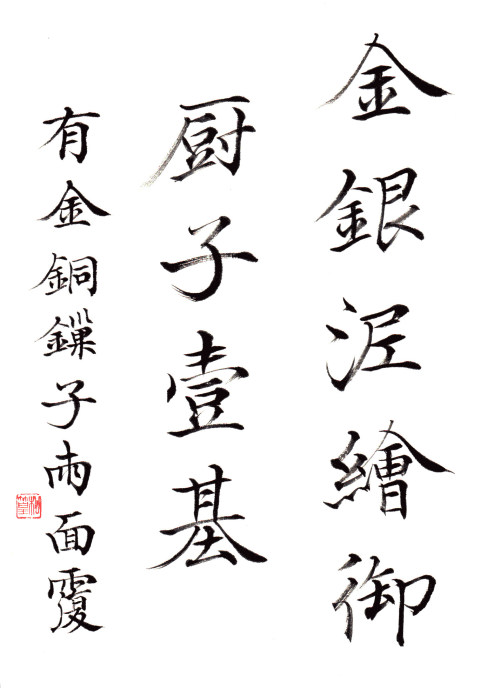 金銀泥繪御
厨子壹基
有金銅鏁子両面覆